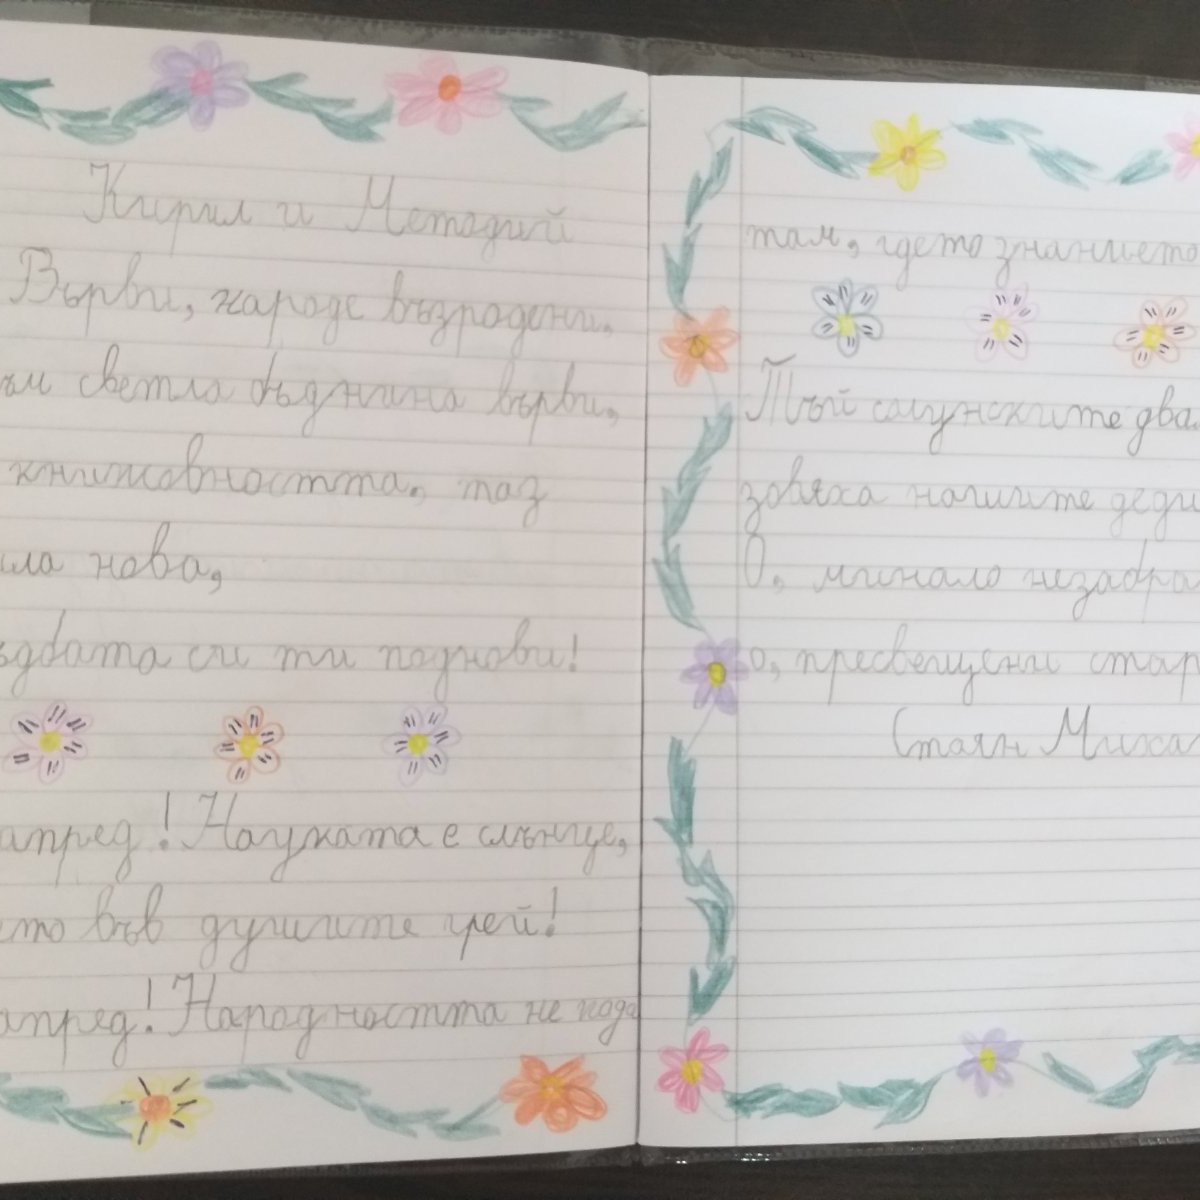 Кирил и Методий
Върви, народе възродени,
към светла бъднина върви,
книжовността, таз
сила нова,
съдбата си ти поднови!
Напред! Науката е слънце,
което във душите грей!
Напред! Народността не пада
там, гдето знанието
Тъй солунските два
зовяха нашите деди
О, минало незабра
о, пресвещени стар
Стоян Миха